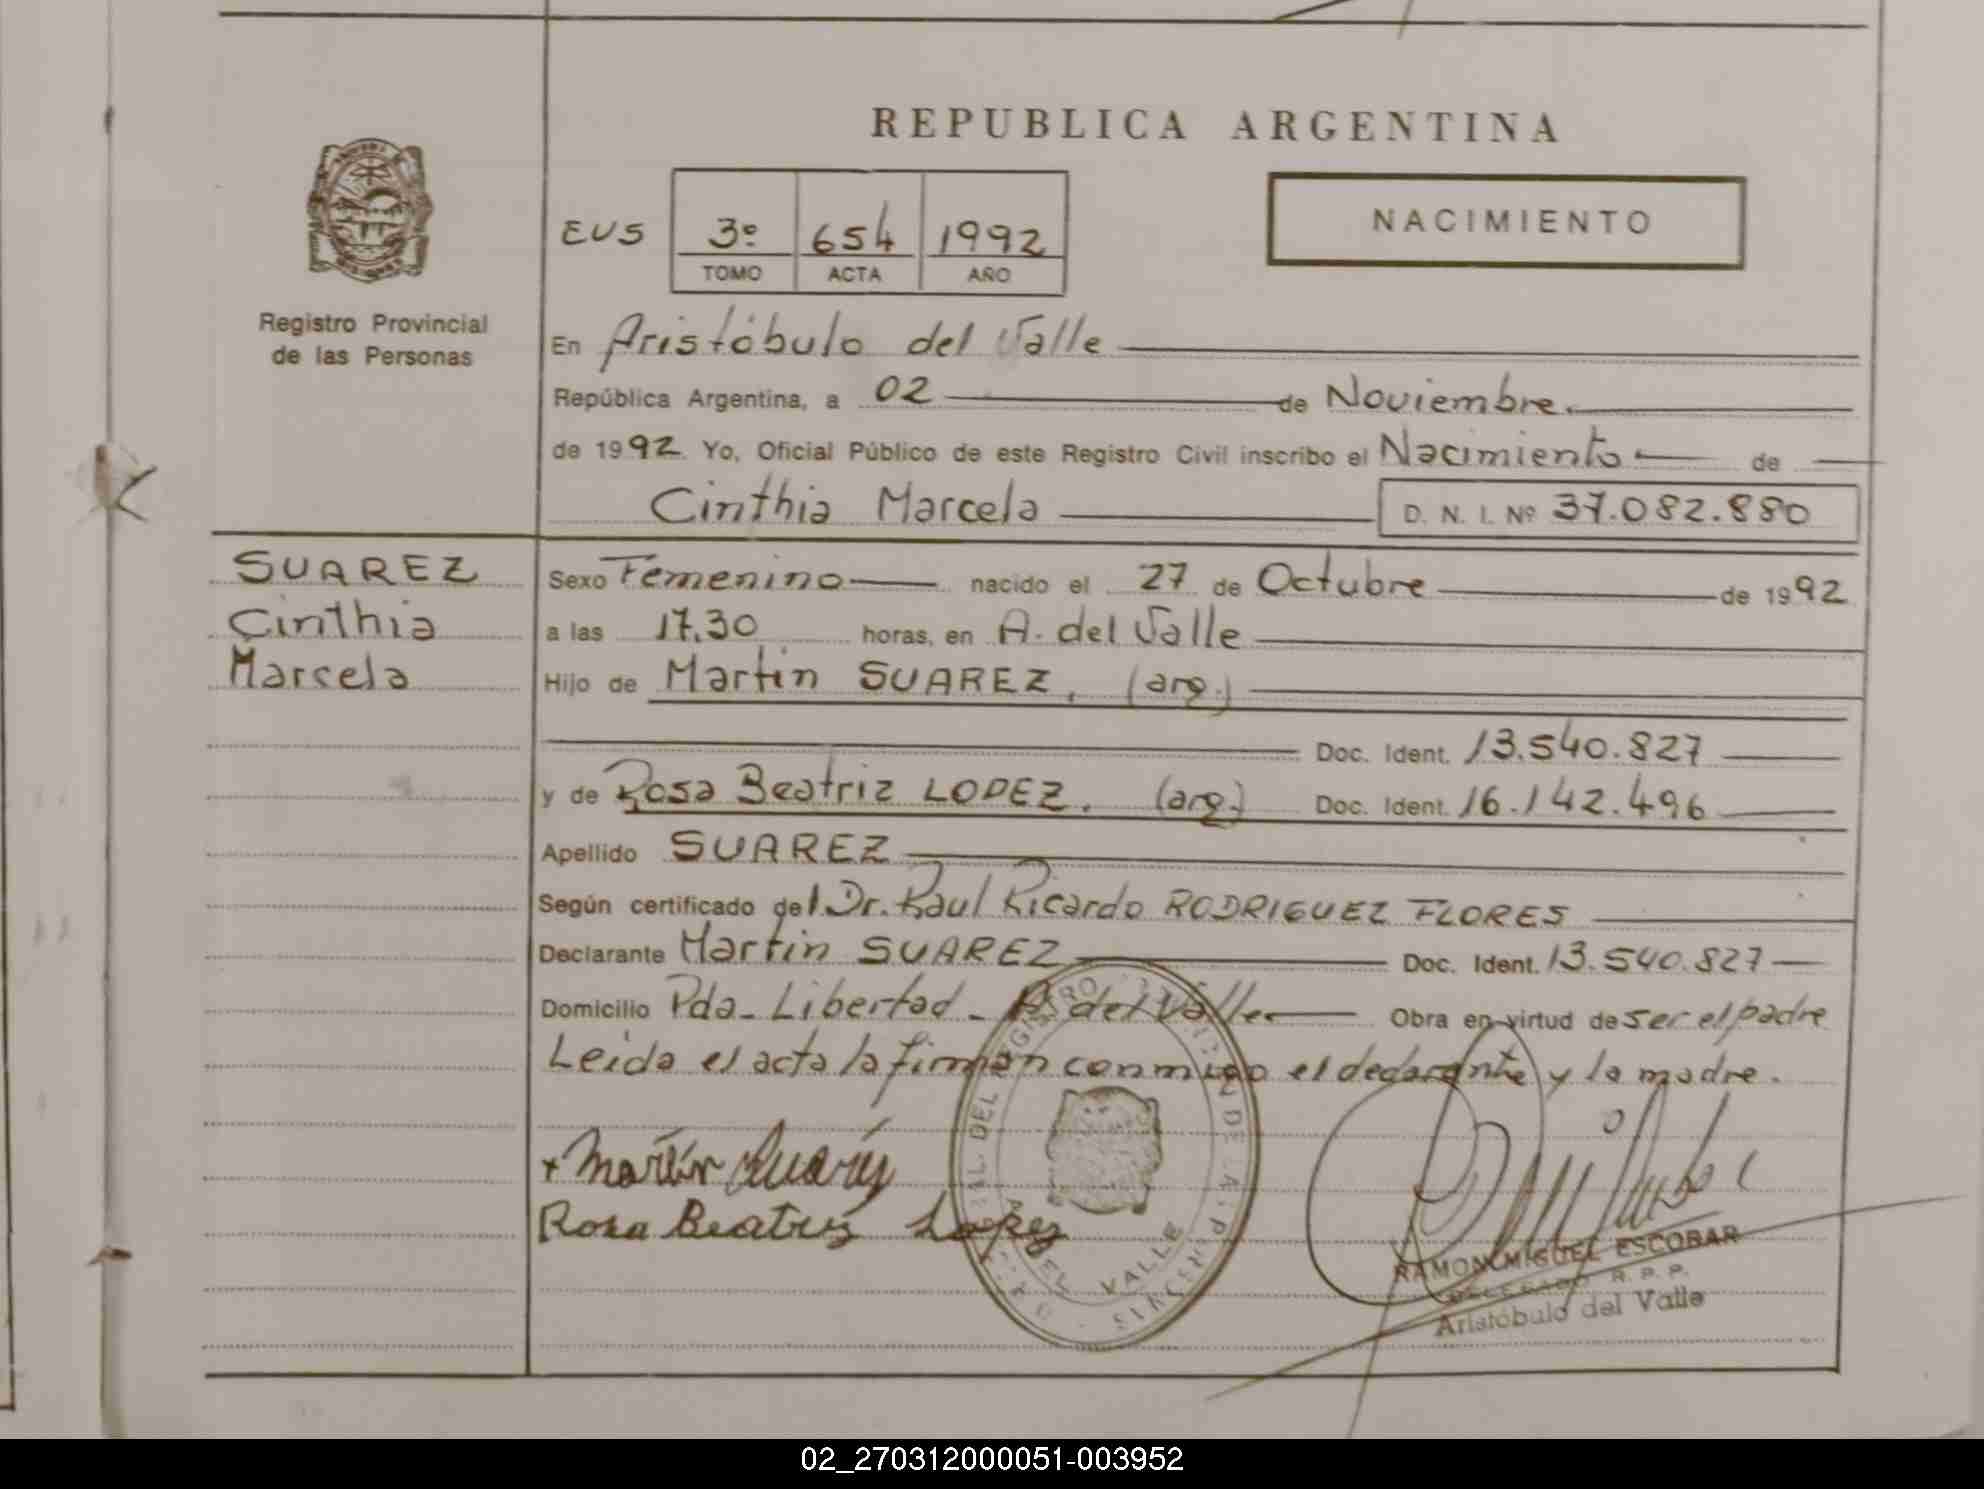 REPUBLICA ARGENTINA
NACIMIENTO
EUS 3º 654 1992
TOMO ACTA AÑO
Registro Provincial
de las Personas
En Aristóbulo del Valle
República Argentina, a 02 de Noviembre.
de 1992. Yo, Oficial Público de este Registro Civil inscribo el Nacimiento de
Cinthia Marcela D. N. I. Nº 37.082.880
SUAREZ
Cinthia
Marcela
Sexo Femenino nacido el 27 de Octubre de 1992
a las 17.30 horas, en A. del Valle
Hijo de Martin SUAREZ. (arg.)
Doc. Ident. 13.540.827
y de Rosa Beatriz LOPEZ. (arg.) Doc. Ident. 16.142.496
Apellido SUAREZ
Según certificado del Dr. Raul Ricardo RODRIGUEZ FLORES
Declarante Martin SUAREZ Doc. Ident. 13.540.827
Domicilio Pda. Libertad - A. del Valle. Obra en virtud de ser el padre
Leida el acta la firman conmigo el declarante y la madre.
+ Martin Suarez
Rosa Beatriz Lopez
VALLE
RAMON MIGUEL ESCOBAR
DELEGADO R. P. P.
Aristóbulo del Valle
02_270312000051-003952